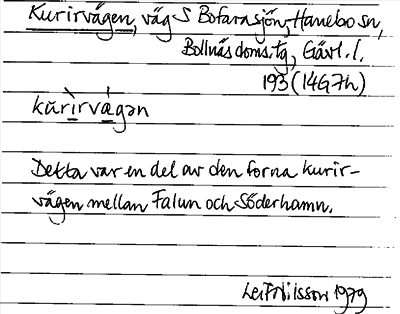 Kurirvägen, väg S Bofarasjön, Hanebo sn,
Bollnäs doms.tg, Gävl. l.
193 (14G7h)
kŭrìrvǽgən
Detta var en del av den forna kurir-
vägen mellan Falun och Söderhamn.
Leif Nilsson 1979